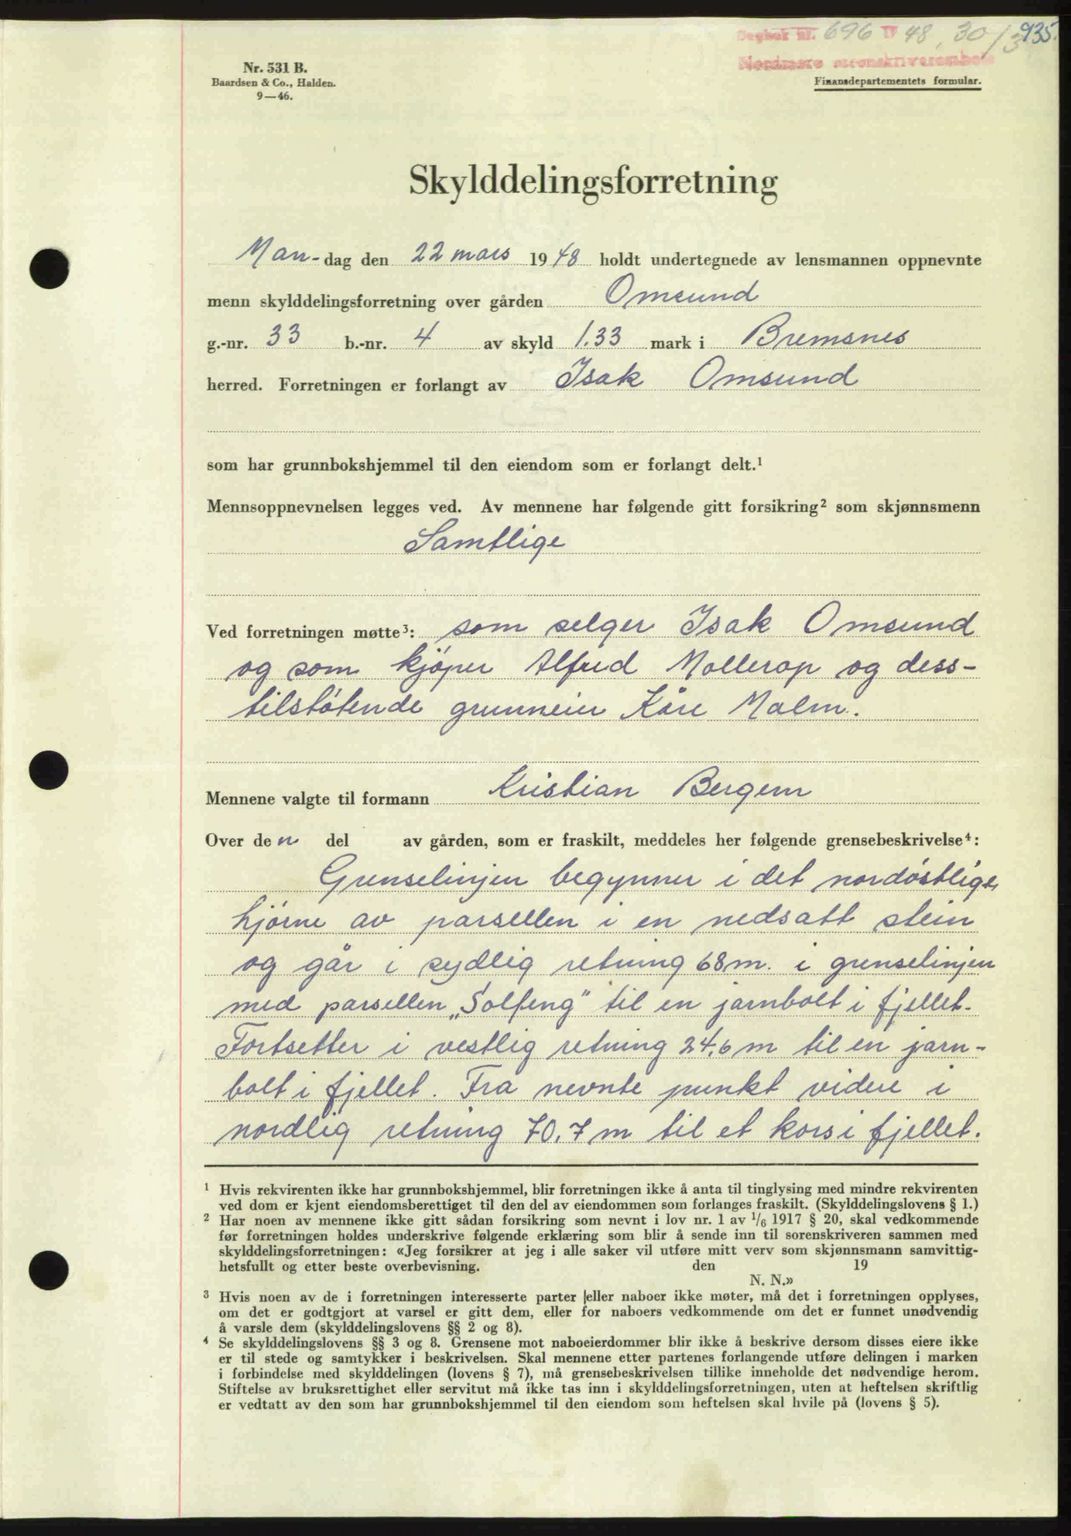 Dagbok nr. 696 19 48, 30/3 935.
Nordmøre sorenskriverembete
Nr. 531 B.
Baardsen & Co., Halden.
9—46.
Finansdepartementets formular.
Skylddelingsforretning
Man-dag den 22 mars 1948 holdt undertegnede av lensmannen oppnevnte
menn skylddelingsforretning over gården Omsund
g.-nr. 33 b.-nr. 4 av skyld 1.33 mark i Bremsnes
herred. Forretningen er forlangt av Isak Omsund
som har grunnbokshjemmel til den eiendom som er forlangt delt.¹
Mennsoppnevnelsen legges ved. Av mennene har følgende gitt forsikring² som skjønnsmenn
Samtlige
Ved forretningen møtte³: som selger Isak Omsund
og som kjøper Alfred Mollerop og dess-
tilstøtende grunneier Kåre Malm.
Mennene valgte til formann Kristian Bergem
Over den del av gården, som er fraskilt, meddeles her følgende grensebeskrivelse⁴:
Grenselinjen begynner i det nordøstlige
hjørne av parsellen i en nedsatt stein
og går i sydlig retning 68 m. i grenselinjen
med parsellen „Solfeng" til en jarnbolt i fjellet.
Fortsetter i vestlig retning 24,6 m til en jarn-
bolt i fjellet. Fra nevnte punkt videre i
nordlig retning 70,7 m til et kors i fjellet.
¹ Hvis rekvirenten ikke har grunnbokshjemmel, blir forretningen ikke å anta til tinglysing med mindre rekvirenten
ved dom er kjent eiendomsberettiget til den del av eiendommen som forlanges fraskilt. (Skylddelingslovens § 1.)
² Har noen av mennene ikke gitt sådan forsikring som nevnt i lov nr. 1 av 1/6 1917 § 20, skal vedkommende
før forretningen holdes underskrive følgende erklæring som blir å sende inn til sorenskriveren sammen med
skylddelingsforretningen: «Jeg forsikrer at jeg i alle saker vil utføre mitt verv som skjønnsmann samvittig-
hetsfullt og etter beste overbevisning. den 19
N. N.»
³ Hvis noen av de i forretningen interesserte parter eller naboer ikke møter, må det i forretningen opplyses,
om det er godtgjort at varsel er gitt dem, eller for naboers vedkommende om det er funnet unødvendig
å varsle dem (skylddelingslovens §§ 2 og 8).
⁴ Se skylddelingslovens §§ 3 og 8. Grensene mot naboeierdommer blir ikke å beskrive dersom disses eiere ikke
er til stede og samtykker i beskrivelsen. Skal mennene etter partenes forlangende utføre delingen i marken
i forbindelse med skylddelingen (lovens § 7), må grensebeskrivelsen tillike inneholde det nødvendige herom.
Stiftelse av bruksrettighet eller servitut må ikke tas inn i skylddelingsforretningen, uten at heftelsen skriftlig
er vedtatt av den som har grunnbokshjemmel til den eiendom som heftelsen skal hvile på (lovens § 5).